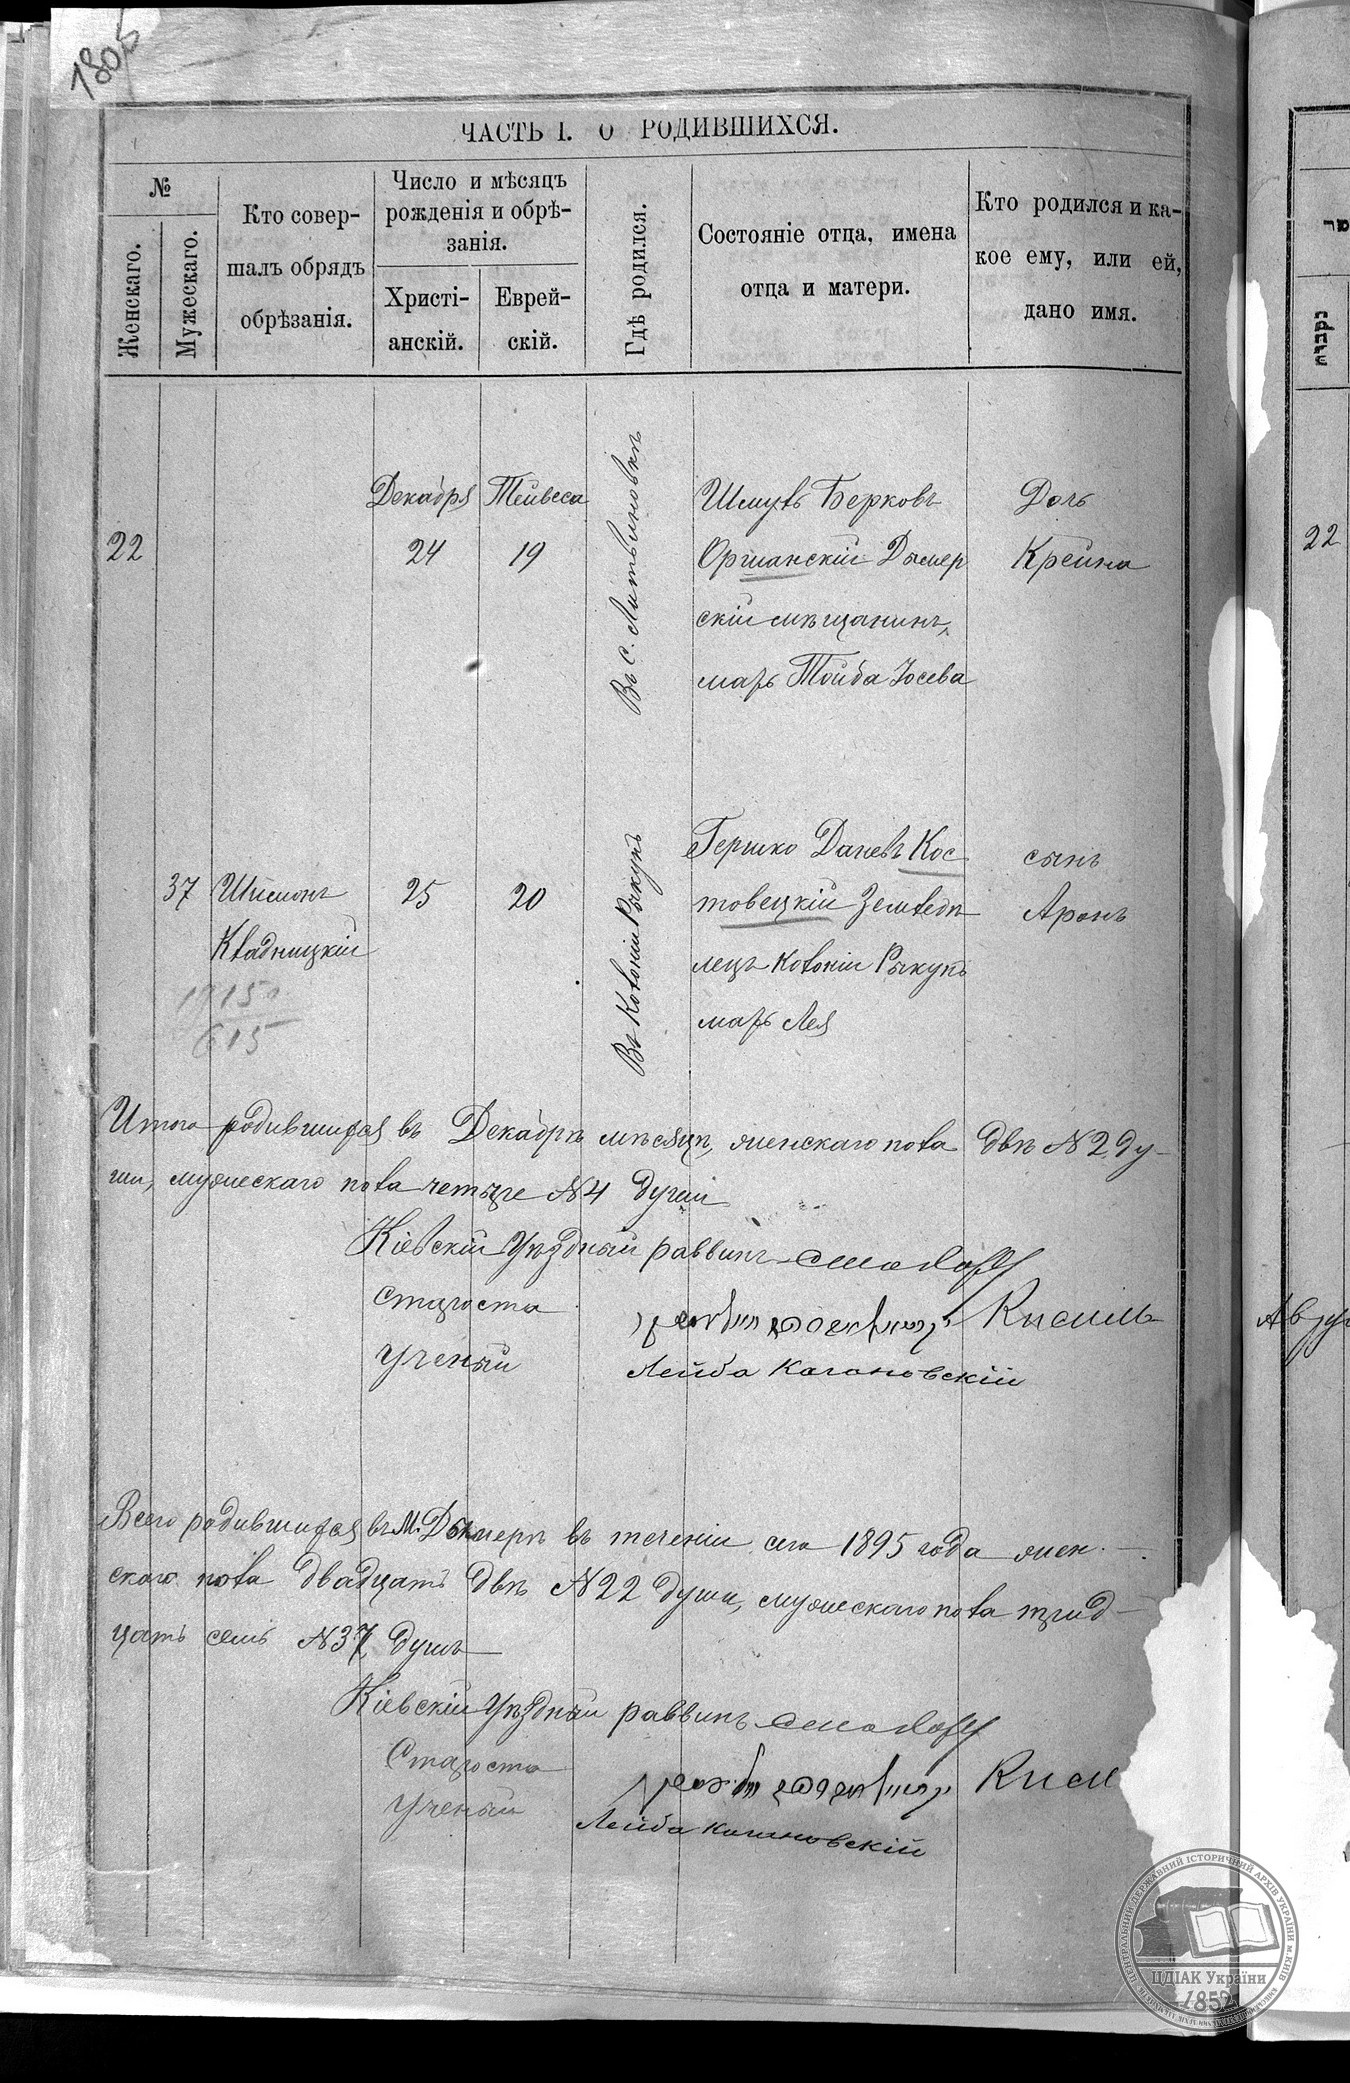 1895
ЧАСТЬ I. О РОДИВШИХСЯ.
№
Женскаго.
Мужескаго.
Кто совер-
шалъ обрядъ
обрѣзанія.
Число и мѣсяцъ
рожденія и обрѣ-
занія.
Христі-
анскій.
Еврей-
скій.
Гдѣ родился.
Состояніе отца, имена
отца и матери.
Кто родился и ка-
кое ему, или ей,
дано имя.
22
Декабря
24
Тейвеса
19
Въ с. Литвиновкѣ
Шмуль Берковъ
Оршанскій Дымер
скій мѣщанинъ,
марь Тойба Іосева
Дочь
Крейна
37
Шимонъ
Кладницкій
25
20
Въ Колоніи Рыкунь
Гершко Даневъ Кос
товецкій Земледѣ
лецъ колоніи Рыкунь
марь Лея
сынъ
Аронъ
615
Итого родившихся въ Декабрѣ мѣсяцѣ, женскаго пола двѣ №2 ду-
ши, мужескаго пола четыре №4 души
Кіевскій Уѣздный раввинъ
Староста
Кисиль
Ученый
Лейба Кагановскій
Всего родившихся въ М. Дымерѣ въ теченіи сего 1895 года жен-
скаго пола двадцать двѣ №22 души, мужескаго пола трид-
цать семь №37 душъ
Кіевскій Уѣздный раввинъ
Староста
Ученый
Лейба Кагановскій
נקבות
22
ЦЕНТРАЛЬНИЙ ДЕРЖАВНИЙ ІСТОРИЧНИЙ АРХІВ УКРАЇНИ м. КИЇВ
ЦДІАК України
1852